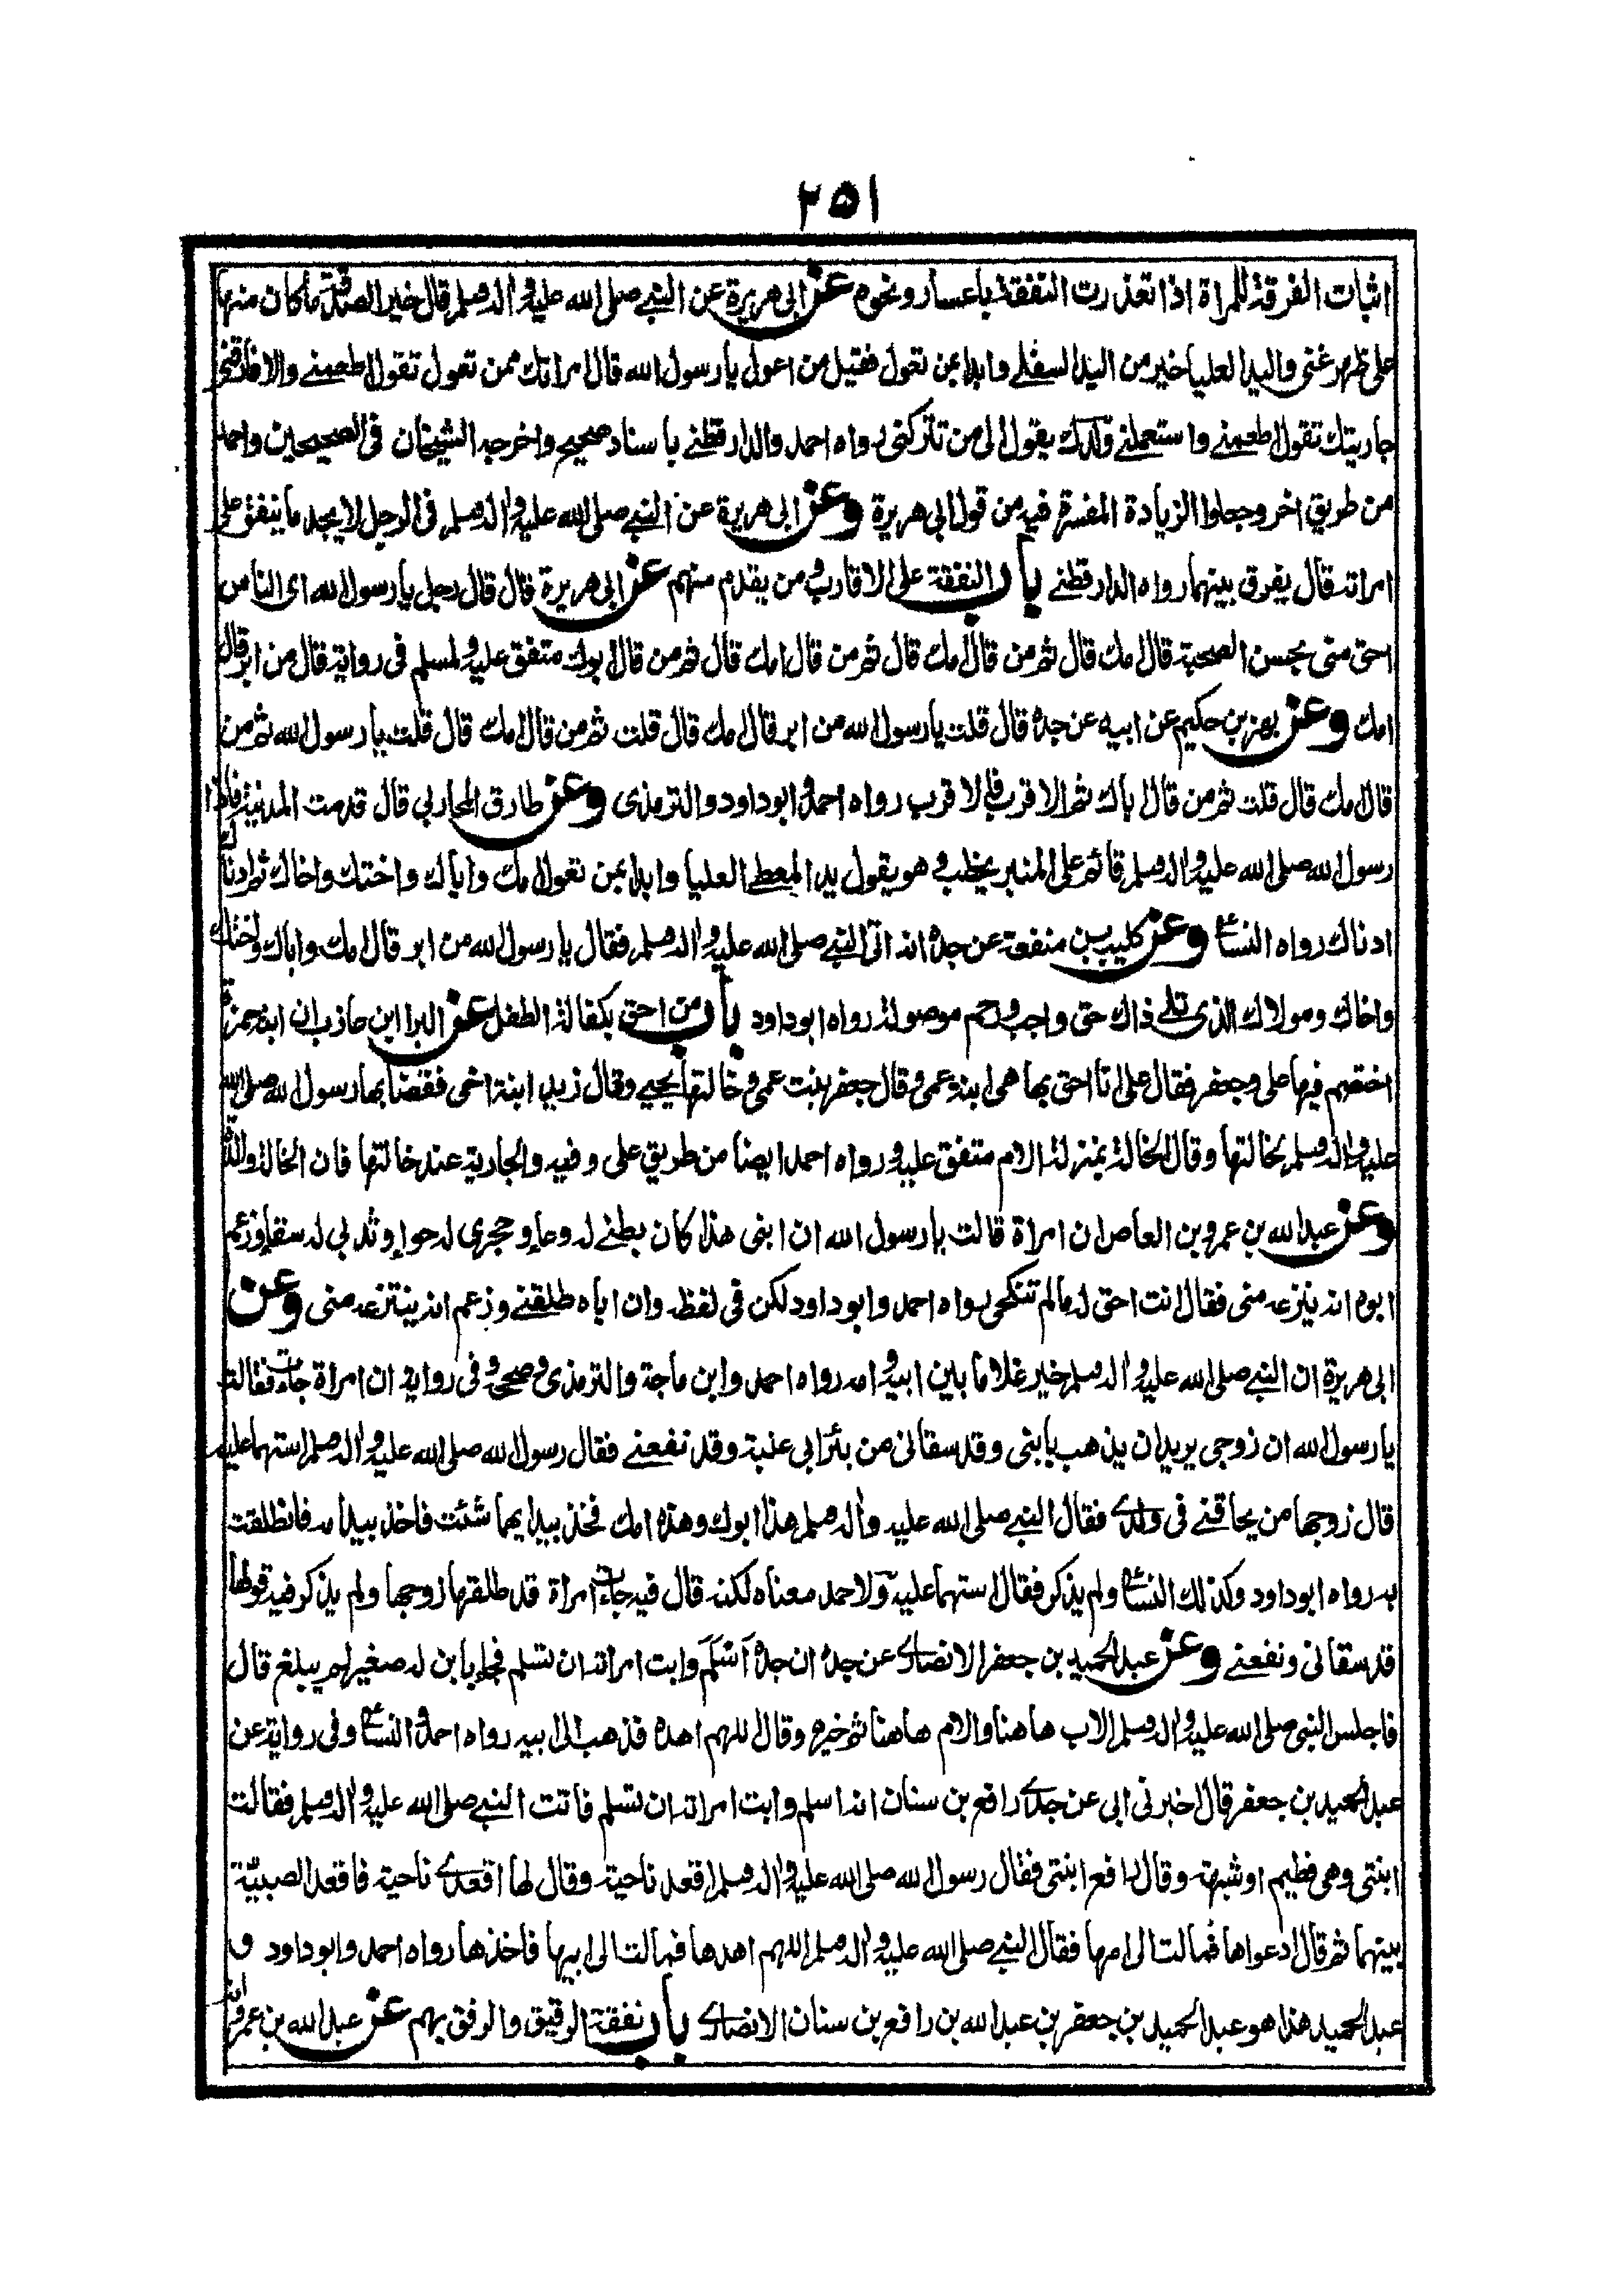 ٢٥١
اثبات الفرقة للمراة اذا تعذرت النفقة باعسار ونحوه عن ابى هريرة عن النبي صلى الله عليه واله وسلم قال خير الصدقة ما كان منها
على ظهر غنى واليد العليا خير من اليد السفلے وابدا بمن تعول فقيل من اعول يا رسول الله قال امراتك ممن تعول تقول اطعمنے والا فارقنى
جاريتك تقول اطعمنے واستعملنے ولدك يقول الى من تتركنى رواه احمد والدارقطنے باسناد صحيح واخرجه الشيخان فى الصحيحين واحمد
من طريق اخر وجعلوا الزيادة المفسرة فيه من قول ابى هريرة وعن ابى هريرة عن النبي صلى الله عليه واله وسلم فى الرجل لا يجد ما ينفق على
امراته قال يفرق بينهما رواه الدارقطنے باب النفقة على الاقارب ومن يقدم منهم عن ابى هريرة قال قال رجل يا رسول الله اى الناس
احق منى بحسن الصحبة قال امك قال ثم من قال امك قال ثم من قال امك قال ثم من قال ابوك متفق عليه ولمسلم فى رواية قال من ابر قال
امك وعن بهز بن حكيم عن ابيه عن جده قال قلت يا رسول الله من ابر قال امك قال قلت ثم من قال امك قال قلت يا رسول الله ثم من
قال امك قال قلت ثم من قال اباك ثم الاقرب فالاقرب رواه احمد وابو داود والترمذى وعن طارق المحاربى قال قدمت المدينة فاذا
رسول الله صلى الله عليه واله وسلم قائم على المنبر يخطب وهو يقول يد المعطى العليا وابدا بمن تعول امك واباك واختك واخاك ثم ادناك
ادناك رواه النسائ وعن كليب بن منفعة عن جده انه اتى النبي صلى الله عليه واله وسلم فقال يا رسول الله من ابر قال امك واباك واختك
واخاك ومولاك الذى يلے ذاك حق واجب ورحم موصولة رواه ابو داود باب من احق بكفالة الطفل عن البرا ابن عازب ان ابنة حمزة
اختصم فيها على وجعفر فقال على انا احق بها هى ابنة عمى وقال جعفر بنت عمى وخالتها تحتى وقال زيد ابنة اخى فقضا بها رسول الله صلى الله
عليه واله وسلم لخالتها وقال الخالة بمنزلة الام متفق عليه ورواه احمد ايضا من طريق على وفيه والجارية عند خالتها فان الخالة والدة
وعن عبد الله بن عمرو بن العاص ان امراة قالت يا رسول الله ان ابنى هذا كان بطنے له وعاء وحجرى له حواء وثدبى له سقاء وزعم
ابوه انه ينزعه منى فقال انت احق له مالم تنكحى رواه احمد وابو داود لكن فى لفظه وان اباه طلقنے وزعم انه ينتزعه منى وعن
ابى هريرة ان النبي صلى الله عليه واله وسلم خير غلاما بين ابيه وامه رواه احمد وابن ماجة والترمذى وصححه وفى رواية ان امراة جاءت فقالت
يا رسول الله ان زوجى يريد ان يذهب بابنى وقد سقانى من بئر ابى عنبة وقد نفعنے فقال رسول الله صلى الله عليه واله وسلم استهما عليه
قال زوجها من يحاقنے فى ولدے فقال النبي صلى الله عليه واله وسلم هذا ابوك وهذه امك فخذ بيد ايهما شئت فاخذ بيد امه فانطلقت
به رواه ابو داود وكذلك النسائ ولم يذكر فقال استهما عليه ولاحمد معناه لكنه قال فيه جاءت امراة قد طلقها زوجها ولم يذكر فيه قولها
قد سقانى ونفعنے وعن عبد الحميد بن جعفر الانصارے عن جده ان جده اسلم وابت امراته ان تسلم فجاء بابن له صغير لم يبلغ قال
فاجلس النبى صلى الله عليه واله وسلم الاب هاهنا والام هاهنا ثم خيره وقال اللهم اهده فذهب الى ابيه رواه احمد والنسائ وفى رواية عن
عبد الحميد بن جعفر قال اخبرنى ابى عن جدے رافع بن سنان انه اسلم وابت امراته ان تسلم فاتت النبي صلى الله عليه واله وسلم فقالت
ابنتى وهى فطيم او شبهه وقال رافع ابنتى فقال رسول الله صلى الله عليه واله وسلم اقعد ناحية وقال لها اقعدے ناحية فاقعد الصبيّة
بينهما ثم قال ادعواها فمالت الى امها فقال النبي صلى الله عليه واله وسلم اللهم اهدها فمالت الى ابيها فاخذها رواه احمد وابو داود و
عبد الحميد هذا هو عبد الحميد بن جعفر بن عبد الله بن رافع بن سنان الانصارے باب نفقة الرقيق والرفق بهم عن عبد الله بن عمرو انه